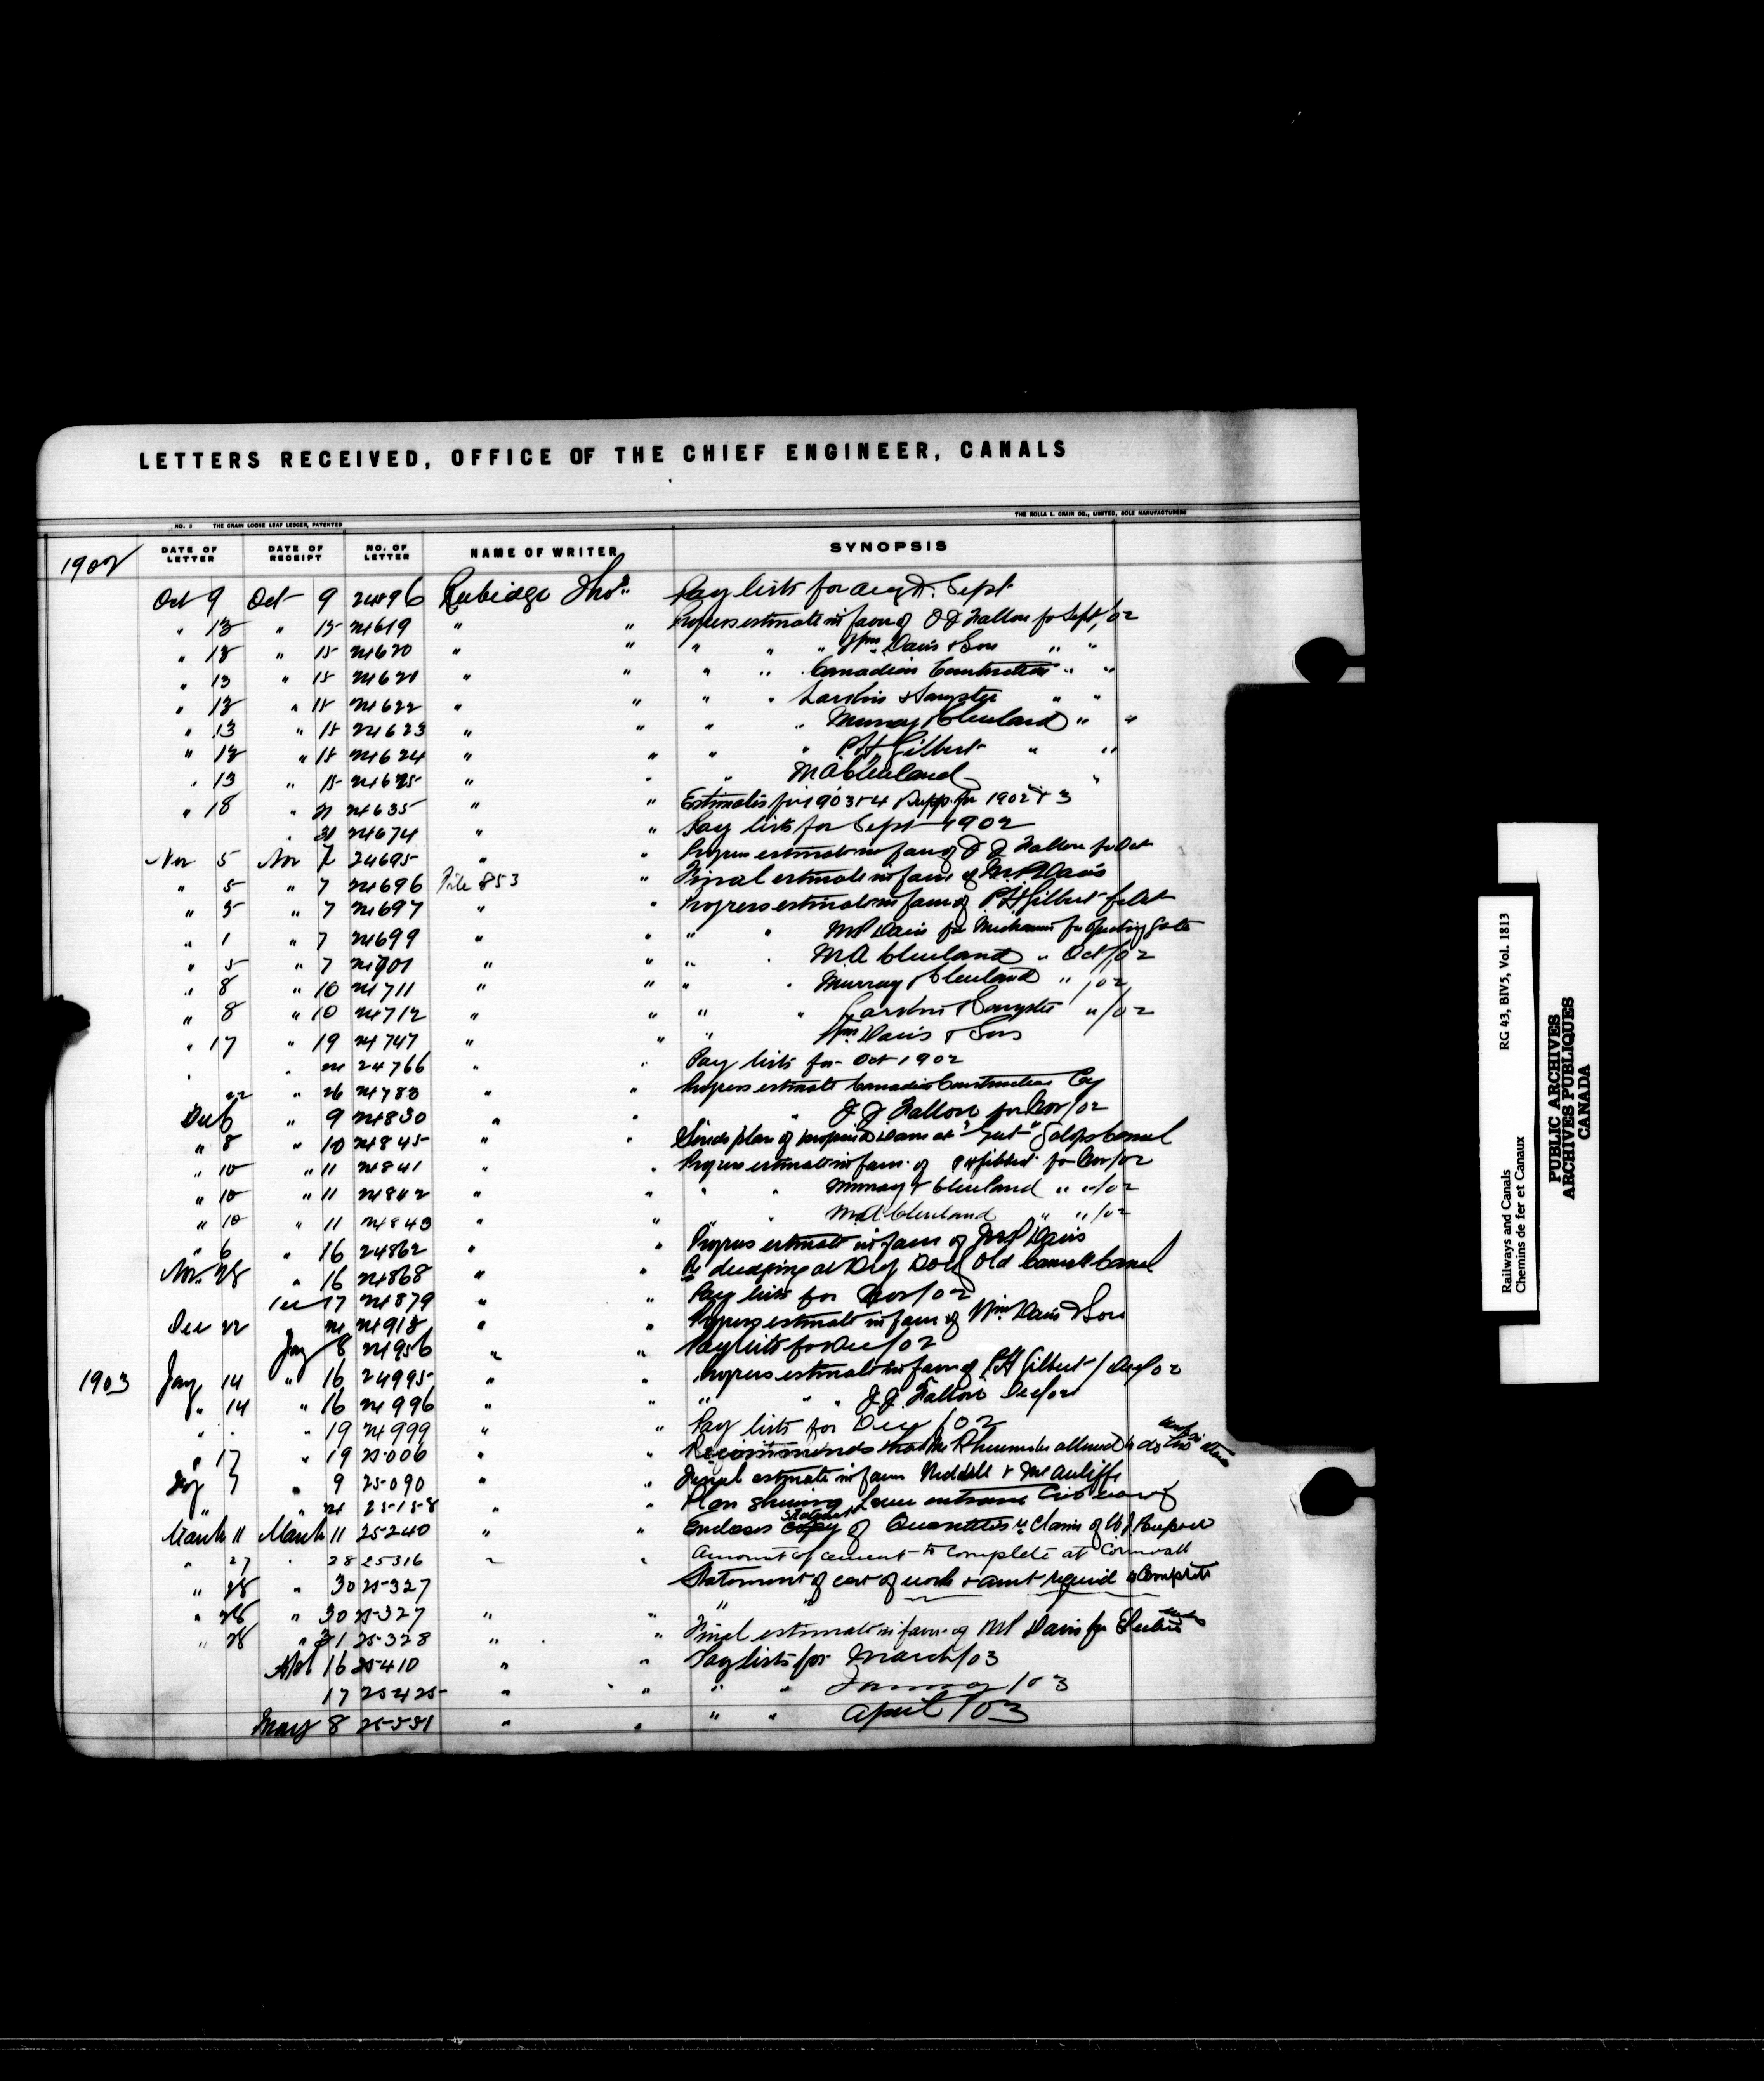 LETTERS RECEIVED, OFFICE OF THE CHIEF ENGINEER, CANALS
NO. 3 THE CRAIN LOOSE LEAF LEDGER, PATENTED THE ROLLA L. CRAIN CO., LIMITED, SOLE MANUFACTURERS
1902 DATE OF LETTER DATE OF RECEIPT NO. OF LETTER NAME OF WRITER SYNOPSIS
Oct 9 Oct 9 24596 Rubidge Thos Pay lists for Aug & Sept
" 13 " 15 24619 " " Progress estimate in favor of J J Fallon for Sept/02
" 13 " 15 24620 " " " " " Wm Davis & Son " "
" 13 " 15 24621 " " " " Canadian Construction " "
" 13 " 15 24622 " " " " Larkin & Sangster " "
" 13 " 15 24623 " " " " Murray & Cleveland " "
" 13 " 15 24624 " " " " P H Gilbert " "
" 13 " 15 24625 " " " M A Cleveland "
" 18 " 21 24635 " " Estimates for 1903 & 4 Supp. for 1902 & 3
" 31 24674 " " Pay lists for Sept 1902
Nov 5 Nov 7 24695 " " Progress estimate in favor of J J Fallon for Oct
" 5 " 7 24696 File 853 " Final estimate in favor of M P Davis
" 5 " 7 24697 " " Progress estimate in favor of P H Gilbert for Oct
" 1 " 7 24699 " " " " M P Davis for Mechanism for Operating Gates
" 5 " 7 24701 " " " " M A Cleveland " Oct/02
" 8 " 10 24711 " " " " Murray & Cleveland " /02
" 8 " 10 24712 " " " " Larkin & Sangster " /02
" 17 " 19 24747 " " " Wm Davis & Sons
" " 24 24766 " " Pay lists for Oct 1902
22 " 26 24783 " " Progress estimate Canadian Construction Coy
Dec 6 " 9 24830 " " " J J Fallon for Nov/02
" 8 " 10 24845 " " Sends plan of proposed Dam at "Gut" Galops Canal
" 10 " 11 24841 " " Progress estimate in favor of P H Gilbert for Nov/02
" 10 " 11 24842 " " " " Murray & Cleveland " " /02
" 10 " 11 24843 " " " " M A Cleveland " " /02
" 6 " 16 24862 " " Progress estimate in favor of Davis
Nov. 28 " 16 24868 " " Re dredging at Dry Dock Old Cornwall Canal
Dec 17 24879 " " Pay lists for Nov/02
Dec 22 24 24918 " " Progress estimate in favor of Wm Davis & Son
Jany 8 24956 " " Pay lists for Dec/02
1903 Jany 14 " 16 24995 " " Progress estimate in favor of P H Gilbert / Dec/02
" 14 " 16 24996 " " " " J J Fallon Dec/02
" " 19 24999 " " Pay lists for Dec /02
" 17 " 19 25006 " " Recommends that Mr be allowed to do his
7 " 9 25090 " " Final estimate in favor Weddell & McAuliffe
" " 24 25158 " " Plan showing Lower entrance
March 11 March 11 25240 " " Encloses copy Statement of Quantities re Claim of W J Poupore
" 27 " 28 25316 " " Amount of cement to complete at Cornwall
" 28 " 30 25327 Statement of cost of work & amt required to Complete
" 28 " 30 25327 " " " "
" 28 " 31 25328 " " Final estimate in favor of M P Davis for
Apl 16 25410 " " Pay lists for March/03
17 25425 " " " " January /03
May 8 25551 " " " " April /03
Railways and Canals RG 43, BIV5, Vol. 1813
Chemins de fer et Canaux
PUBLIC ARCHIVES
ARCHIVES PUBLIQUES
CANADA